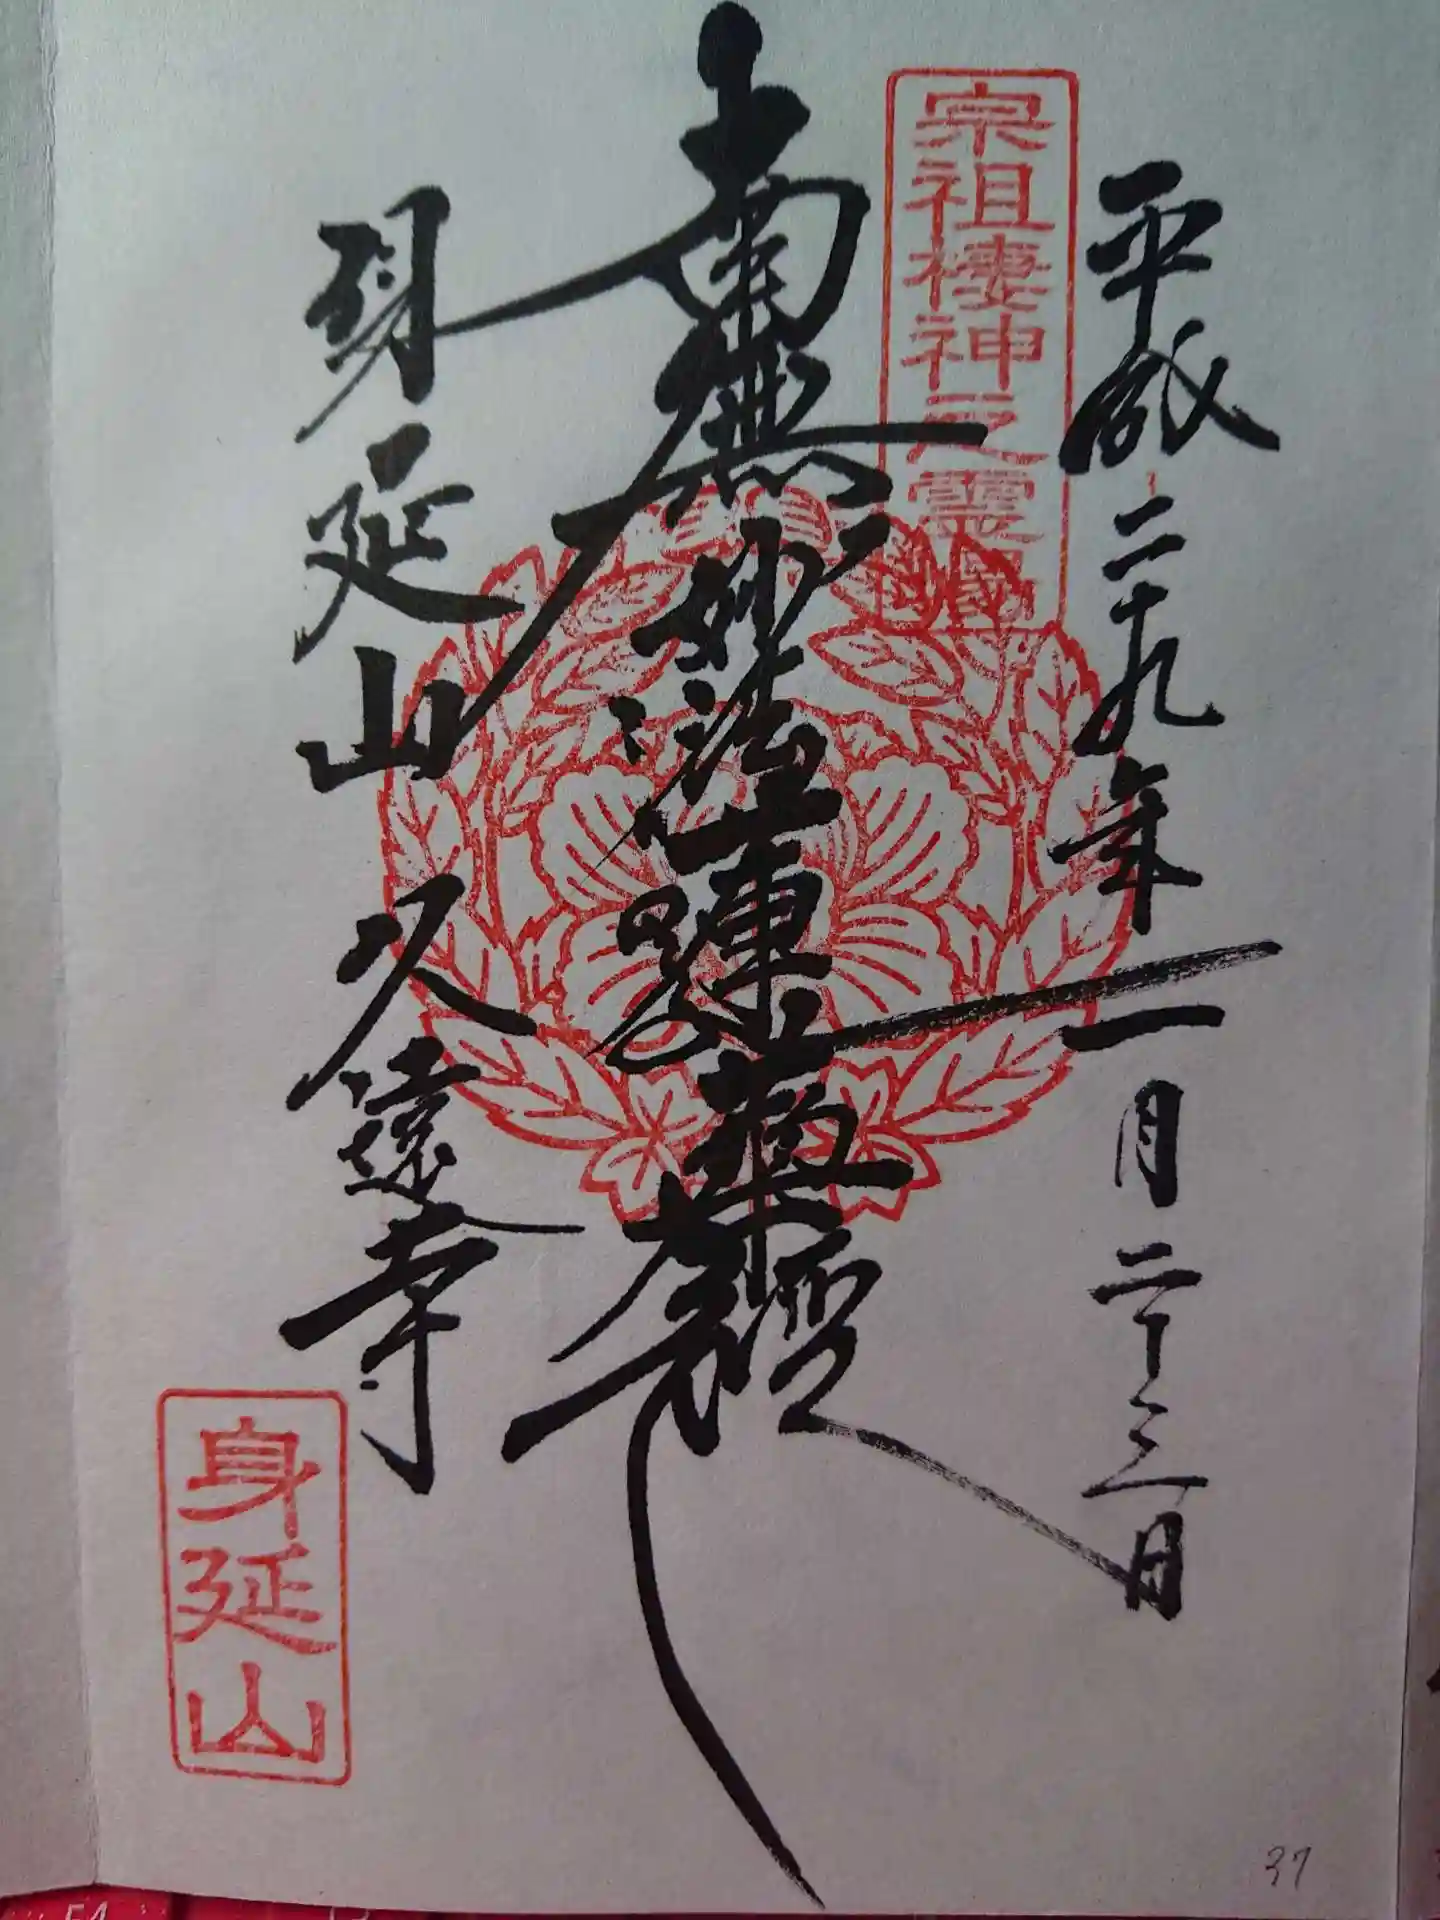 平成二十九年一月二十三日
宗祖棲神之霊
南無妙法蓮華経
身延山久遠寺
身延山
37
F4